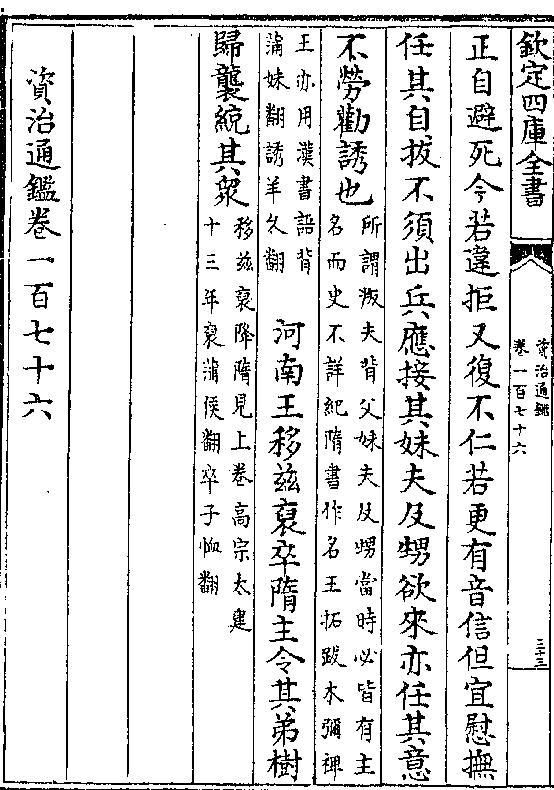 欽定四庫全書
資治通鑑
卷一百七十六
三十三
正自避死今若違拒又復不仁若更有音信但宜慰撫
任其自拔不須出兵應接其妹夫及甥欲來亦任其意
不勞勸誘也
所謂叛夫背父妹夫及甥當時必皆有主
名而史不詳紀隋書作名王拓跋木彌禆
王亦用漢書語背
蒲妹翻誘羊久翻
河南王移茲裒卒隋主令其弟樹
歸襲統其衆
移茲裒降隋見上卷高宗太建
十三年裒蒲侯翻卒子恤翻
資治通鑑卷一百七十六